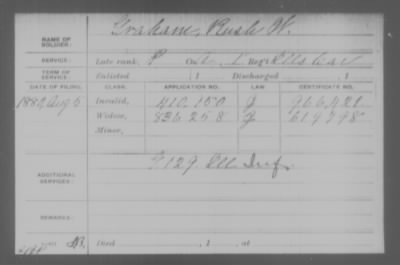 NAME OF SOLDIER: Graham, Rush W.
SERVICE: Late rank, P Co. L, 1 Reg't Ills Cav
TERM OF SERVICE: Enlisted , 1 Discharged , 1
DATE OF FILING. CLASS. APPLICATION NO. LAW. CERTIFICATE NO.
1880, Aug 5 Invalid, 410,150 J 966,428
Widow, 836,258 J 614,798
Minor,
ADDITIONAL SERVICES: 129 Ill Inf
REMARKS:
Died , 1 , at